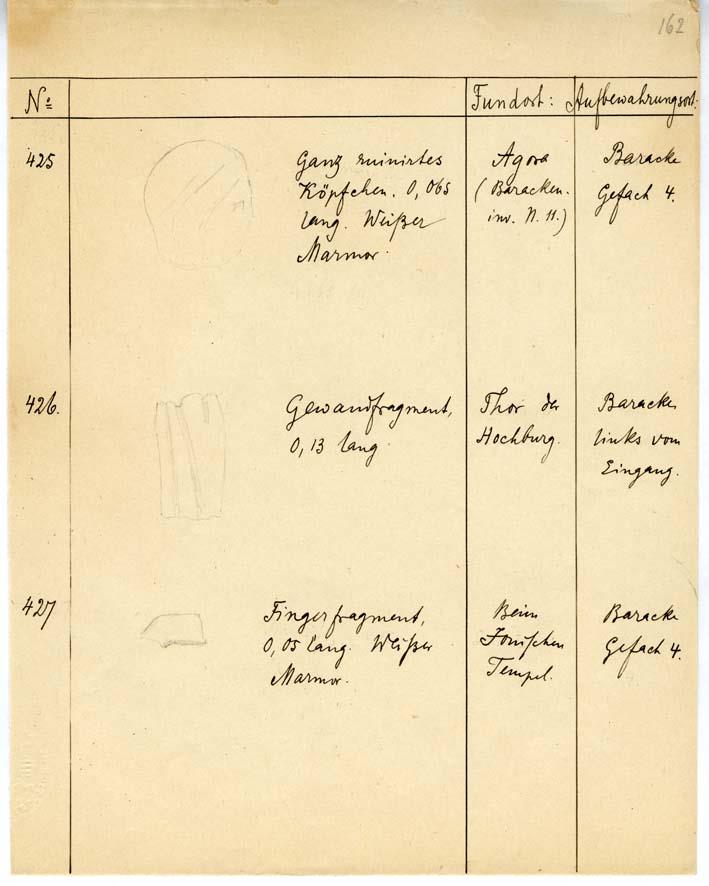 162
No Fundort: Aufbewahrungsort:
425 Ganz ruinirtes Agora Baracke
Köpfchen. 0,065 (Baracken- Gefach 4.
lang. Weißer inv. N. 11.)
Marmor.
426. Gewandfragment, Thor der Baracke
0,13 lang Hochburg. links vom
Eingang.
427 Fingerfragment, Beim Baracke
0,05 lang. Weißer Ionischen Gefach 4.
Marmor. Tempel.